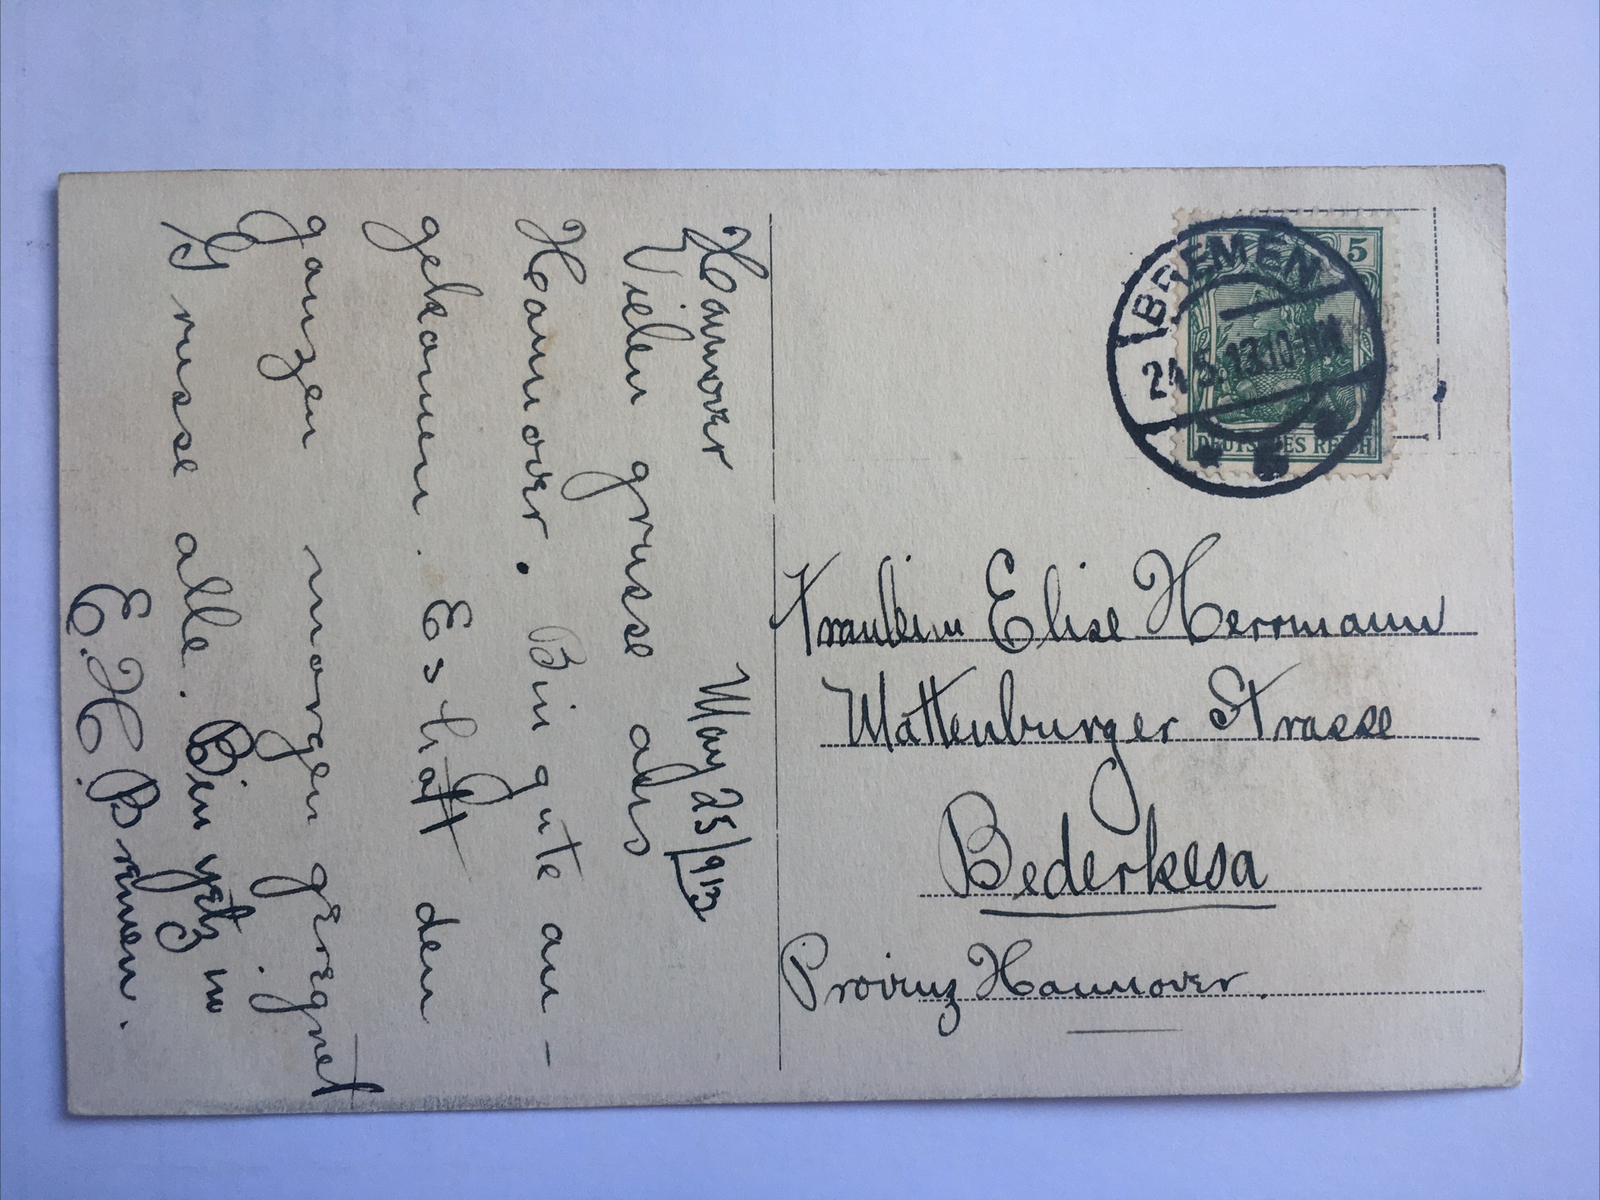 Hannover
May 25/913
Vielen grusse aus
Hannover. Bin gute an-
gekomen. Es hatt den
ganzen morgen geregnet
Grusse alle. Bin yetz in
E. H. Bremen.
5
DEUTSCHES REICH
BREMEN
24.5.13.10-11N
5
Fraulein Elise Herrmann
Mattenburger Strasse
Bederkesa
Provinz Hannover.